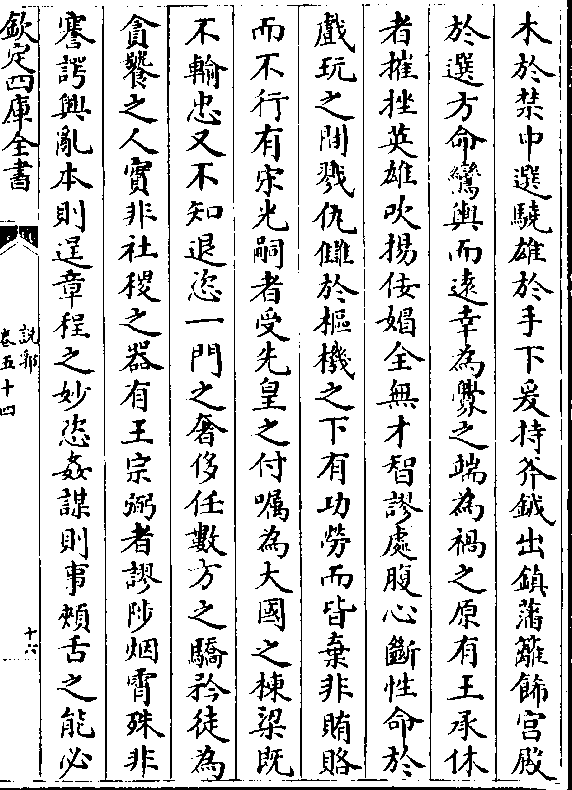 木於禁中選驍雄於手下爰持斧鉞出鎮藩籬飾宫殿
於遐方命鸞輿而遠幸為釁之端為禍之原有王承休
者摧挫英雄吹揚佞媚全無才智謬處腹心斷性命於
戲玩之間戮仇讎於樞機之下有功勞而皆棄非賄賂
而不行有宋光嗣者受先皇之付囑為大國之棟梁既
不輸忠又不知退恣一門之奢侈任數方之驕矜徒為
貪饕之人實非社稷之器有王宗弼者謬陟烟霄殊非
謇諤興亂本則逞章程之妙恣姦謀則事頰舌之能必
欽定四庫全書
説郛
卷五十四
十六